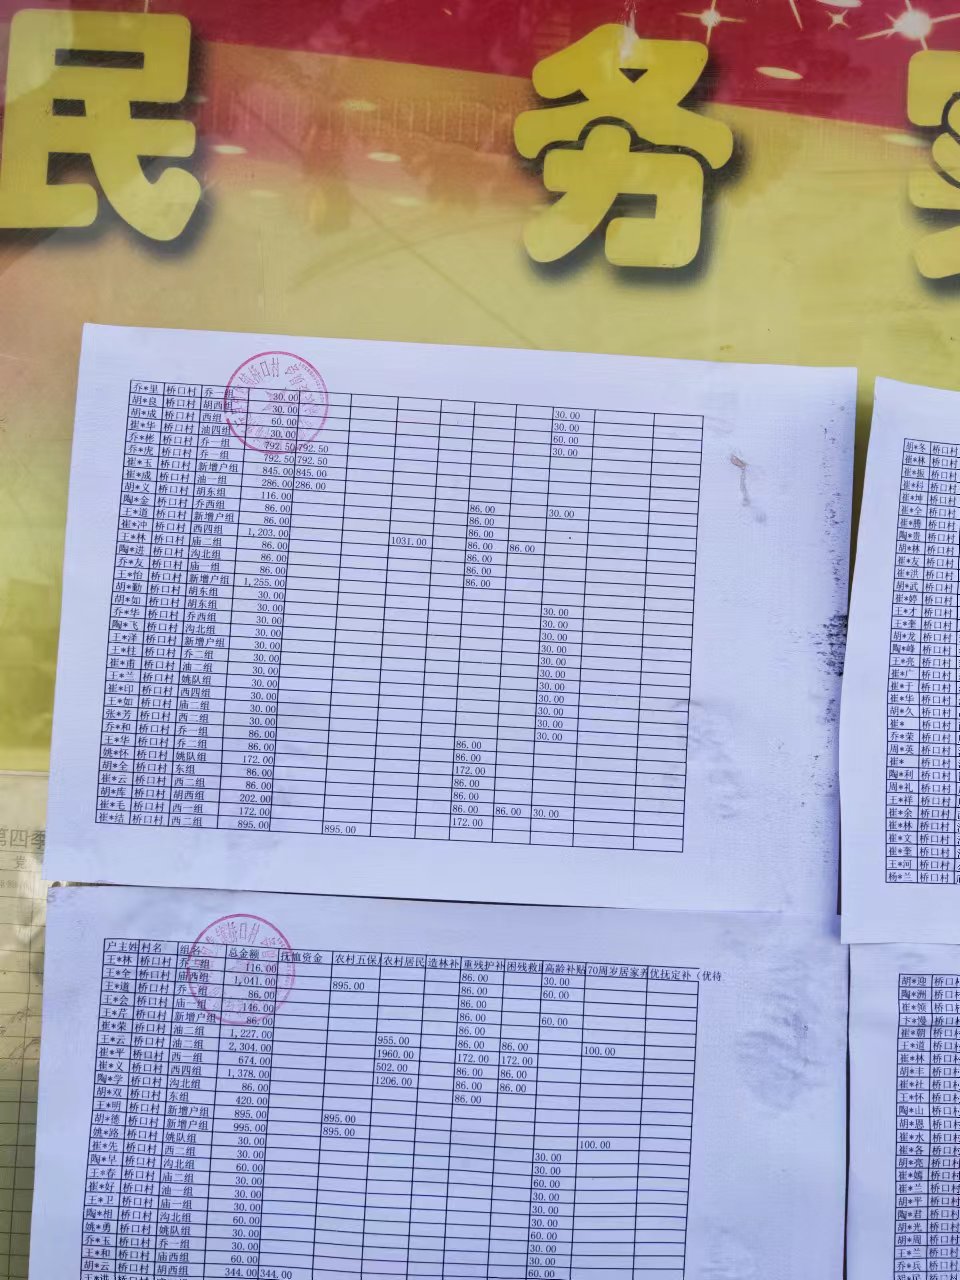 民 务
桥口村
乔*里 桥口村 乔一组 30.00 30.00
胡*良 桥口村 胡西组 30.00 30.00
胡*成 桥口村 西组 60.00 60.00
崔*华 桥口村 油四组 30.00 30.00
乔*彬 桥口村 乔一组 792.50 792.50
乔*虎 桥口村 乔一组 792.50 792.50
崔*玉 桥口村 新增户组 845.00 845.00
崔*成 桥口村 油一组 286.00 286.00
胡*义 桥口村 胡东组 116.00 86.00 30.00
陶*金 桥口村 乔西组 86.00 86.00
王*道 桥口村 新增户组 86.00 86.00
崔*冲 桥口村 西四组 1,203.00 1031.00 86.00 86.00
王*林 桥口村 庙二组 86.00 86.00
陶*进 桥口村 沟北组 86.00 86.00
乔*友 桥口村 庙一组 86.00 86.00
王*怡 桥口村 新增户组 1,255.00
胡*勤 桥口村 胡东组 30.00 30.00
胡*如 桥口村 胡东组 30.00 30.00
乔*华 桥口村 乔西组 30.00 30.00
陶*飞 桥口村 沟北组 30.00 30.00
王*洋 桥口村 新增户组 30.00 30.00
王*柱 桥口村 乔二组 30.00 30.00
崔*甫 桥口村 油二组 30.00 30.00
王*兰 桥口村 姚队组 30.00 30.00
崔*印 桥口村 西四组 30.00 30.00
王*如 桥口村 庙二组 30.00 30.00
张*芳 桥口村 西二组 30.00 30.00
乔*和 桥口村 乔一组 86.00 86.00
王*华 桥口村 乔二组 86.00 86.00
姚*怀 桥口村 姚队组 172.00 172.00
胡*全 桥口村 东组 86.00 86.00
崔*云 桥口村 西二组 86.00 86.00
胡*库 桥口村 胡西组 202.00 86.00 86.00 30.00
崔*毛 桥口村 西一组 172.00 172.00
崔*结 桥口村 西二组 895.00 895.00
桥口村
户主姓 村名 组名 总金额 抚恤资金 农村五保 农村居民 造林补 重残护补 困残救 高龄补贴 70周岁居家养 优抚定补（优待
王*林 桥口村 乔二组 116.00 86.00 30.00
王*全 桥口村 庙西组 1,041.00 895.00 86.00 60.00
王*道 桥口村 乔二组 86.00 86.00
王*会 桥口村 庙一组 146.00 86.00 60.00
王*芹 桥口村 新增户组 86.00 86.00
崔*荣 桥口村 油二组 1,227.00 955.00 86.00 86.00 100.00
王*云 桥口村 油二组 2,304.00 1960.00 172.00 172.00
崔*平 桥口村 西一组 674.00 502.00 86.00 86.00
崔*义 桥口村 西四组 1,378.00 1206.00 86.00 86.00
陶*学 桥口村 沟北组 86.00 86.00
胡*双 桥口村 东组 420.00
王*明 桥口村 新增户组 895.00 895.00
胡*德 桥口村 新增户组 995.00 895.00 100.00
姚*路 桥口村 姚队组 30.00 30.00
崔*先 桥口村 西二组 30.00 30.00
陶*早 桥口村 沟北组 60.00 60.00
王*春 桥口村 庙二组 30.00 30.00
崔*好 桥口村 油一组 30.00 30.00
王*卫 桥口村 庙一组 30.00 30.00
陶*相 桥口村 沟北组 60.00 60.00
姚*勇 桥口村 姚队组 30.00 30.00
乔*玉 桥口村 乔一组 30.00 30.00
王*和 桥口村 庙西组 60.00 60.00
胡*云 桥口村 胡西组 344.00 344.00
第四季
党
胡*冬 桥口村
崔*林 桥口村
崔*振 桥口村
崔*科 桥口村
崔*坤 桥口村
崔*全 桥口村
崔*腾 桥口村
陶*贵 桥口村
胡*林 桥口村
崔*友 桥口村
崔*洪 桥口村
胡*武 桥口村
崔*婷 桥口村
王*才 桥口村
王*奎 桥口村
胡*龙 桥口村
陶*峰 桥口村
王*亮 桥口村
崔*广 桥口村
崔*于 桥口村
崔*华 桥口村
胡*久 桥口村
崔* 桥口村
乔*荣 桥口村
周*英 桥口村
崔* 桥口村
陶*利 桥口村
周*礼 桥口村
王*祥 桥口村
崔*余 桥口村
崔*林 桥口村
崔*文 桥口村
崔*奎 桥口村
王*河 桥口村
杨*兰 桥口村
胡*迎 桥口村
陶*洲 桥口村
崔*领 桥口村
卞*慢 桥口村
崔*朝 桥口村
王*道 桥口村
崔*林 桥口村
胡*丰 桥口村
崔*社 桥口村
王*怀 桥口村
陶*山 桥口村
胡*恩 桥口村
崔*水 桥口村
崔*各 桥口村
胡*亮 桥口村
崔*嫣 桥口村
崔*兰 桥口村
胡*平 桥口村
陶*君 桥口村
胡*光 桥口村
胡*周 桥口村
王*兰 桥口村
乔*兵 桥口村